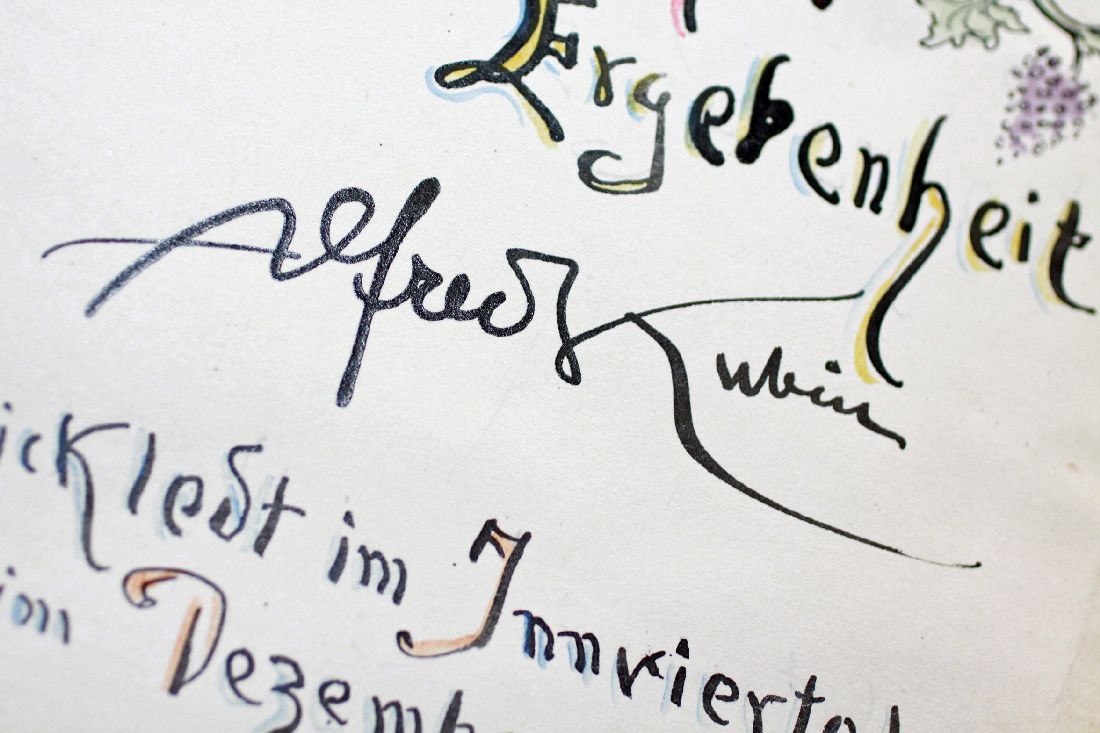 Ergebenheit
Alfred Kubin
ickledt im Innviertel
im Dezemb